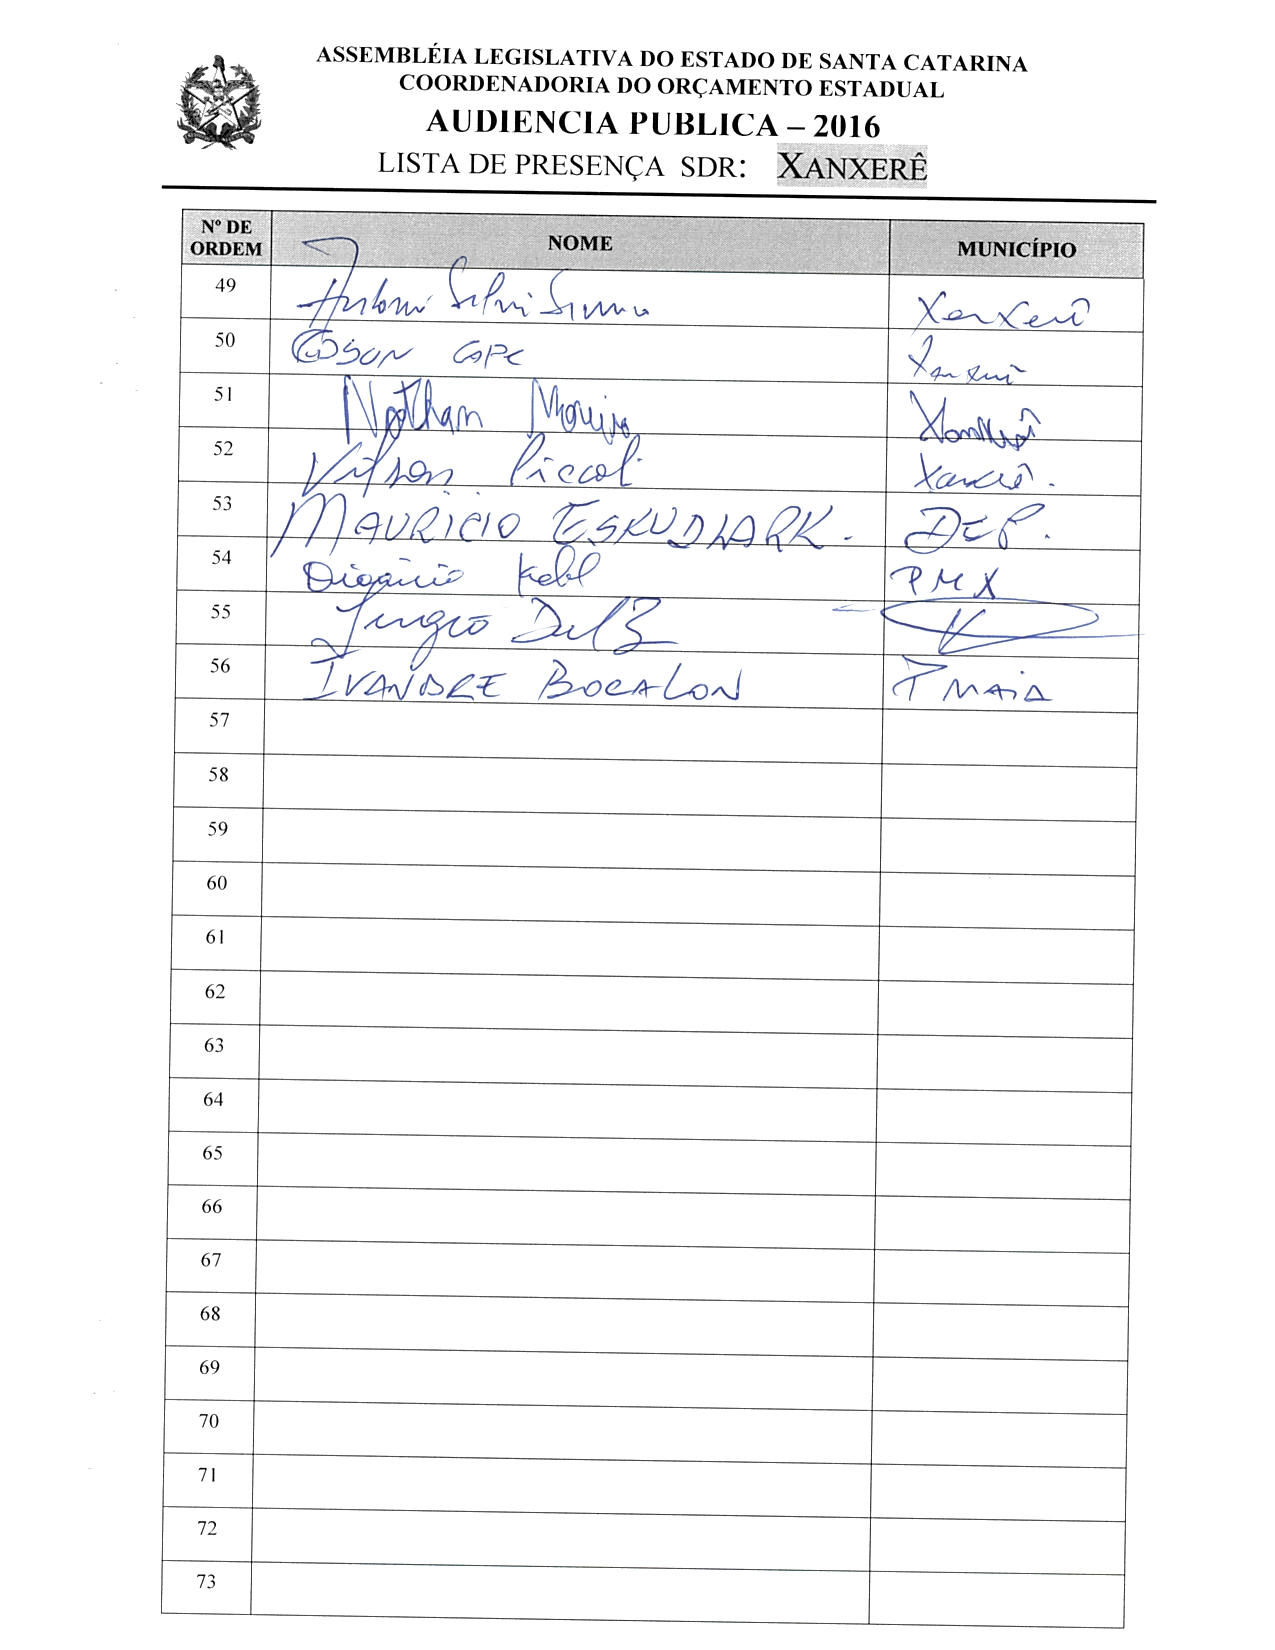 ASSEMBLÉIA LEGISLATIVA DO ESTADO DE SANTA CATARINA
COORDENADORIA DO ORÇAMENTO ESTADUAL
AUDIENCIA PUBLICA – 2016
LISTA DE PRESENÇA SDR: XANXERÊ
Nº DE ORDEM NOME MUNICÍPIO
49 Xanxerê
50 Edson Xanxerê
51 Natham Moreira Xanxerê
52 Vilson Piccoli Xanxerê.
53 MAURICIO ESKUDLARK. DEP.
54 PMX
55 Sergio
56 IVANDRE BOCALON F MAIA
57
58
59
60
61
62
63
64
65
66
67
68
69
70
71
72
73